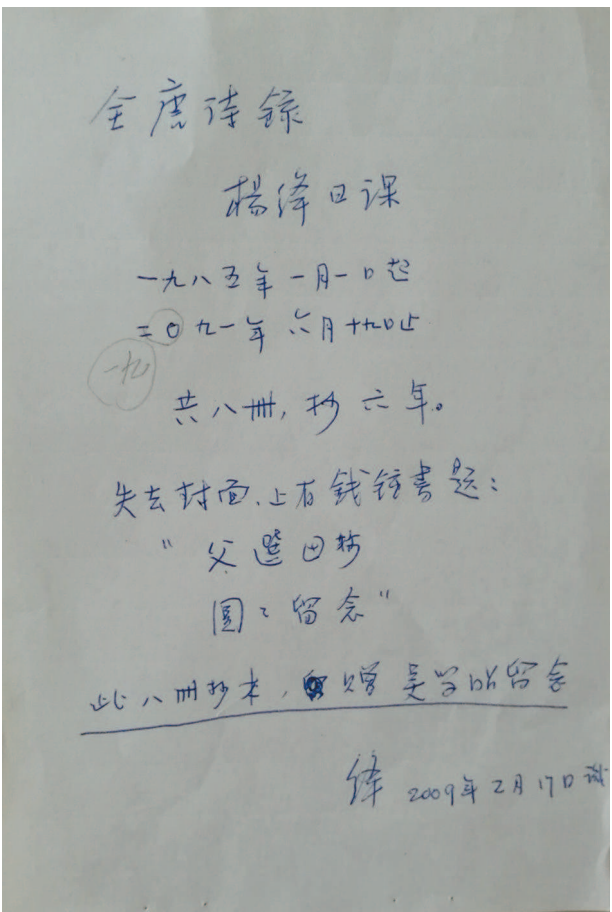 全唐诗録
楊绛日课
一九八五年一月一日起
二〇九一年六月十九日止
一九
共八冊,抄六年。
失去封面、上有錢锺書题:
“父選母抄
圆〻留念”
此八冊抄本,赠吴学昭留念
绛 2009年2月17日